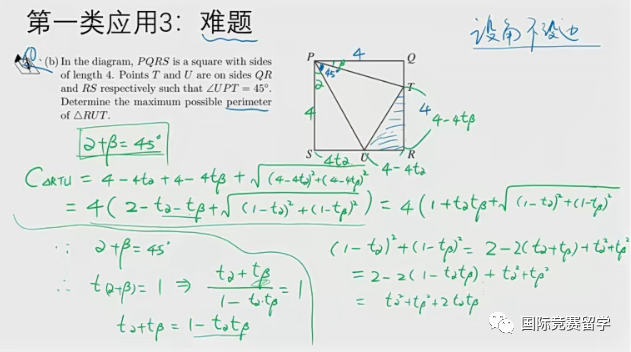 第一类应用3：难题
设角不设边
① (b) In the diagram, PQRS is a square with sides
of length 4. Points T and U are on sides QR
and RS respectively such that ∠UPT = 45°.
Determine the maximum possible perimeter
of △RUT.
P 4 Q
α 45° β
4
T
4
4-4tβ
S 4tα U R
4-4tα
α+β=45°
C△RTU = 4-4tα+4-4tβ+√((4-4tα)²+(4-4tβ)²)
= 4(2-tα-tβ+√((1-tα)²+(1-tβ)²)) = 4(1+tαtβ+√((1-tα)²+(1-tβ)²)
∵ α+β=45°
∴ t(α+β)=1 ⇒ (tα+tβ)/(1-tα·tβ)=1
tα+tβ=1-tαtβ
(1-tα)²+(1-tβ)²= 2-2(tα+tβ)+tα²+tβ²
=2-2(1-tαtβ)+tα²+tβ²
= tα²+tβ²+2tαtβ
国际竞赛留学